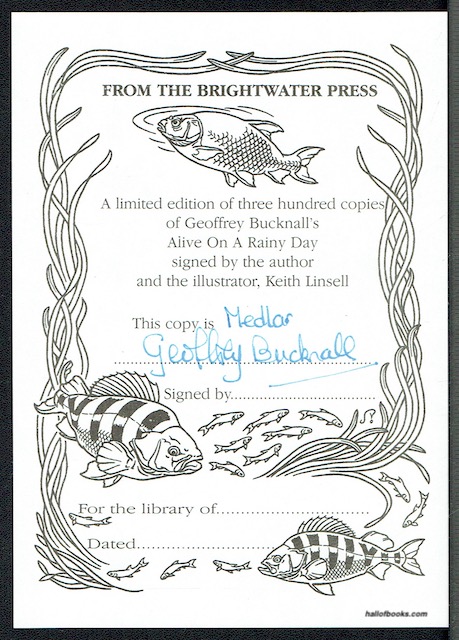 FROM THE BRIGHTWATER PRESS
A limited edition of three hundred copies
of Geoffrey Bucknall's
Alive On A Rainy Day
signed by the author
and the illustrator, Keith Linsell
This copy is Medlar
Geoffrey Bucknall
Signed by
For the library of
Dated
hallofbooks.com